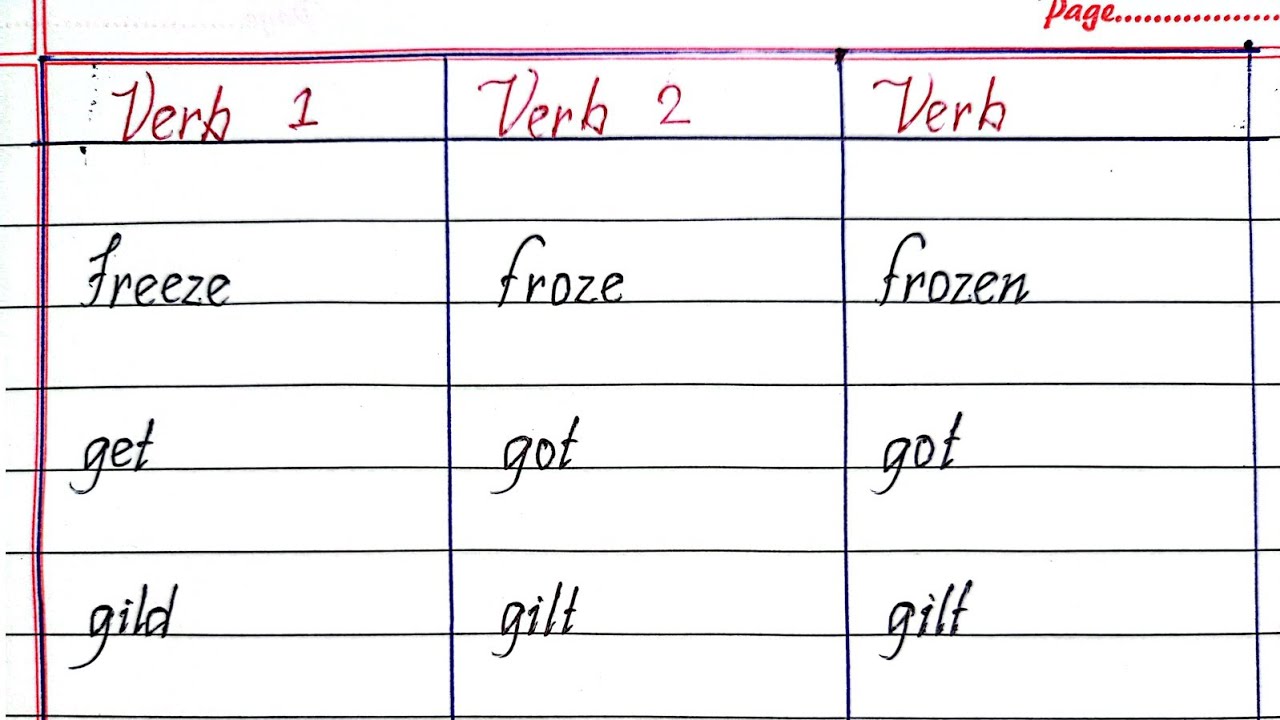 Page.................
Verb 1 Verb 2 Verb
freeze froze frozen
get got got
gild gilt gilt